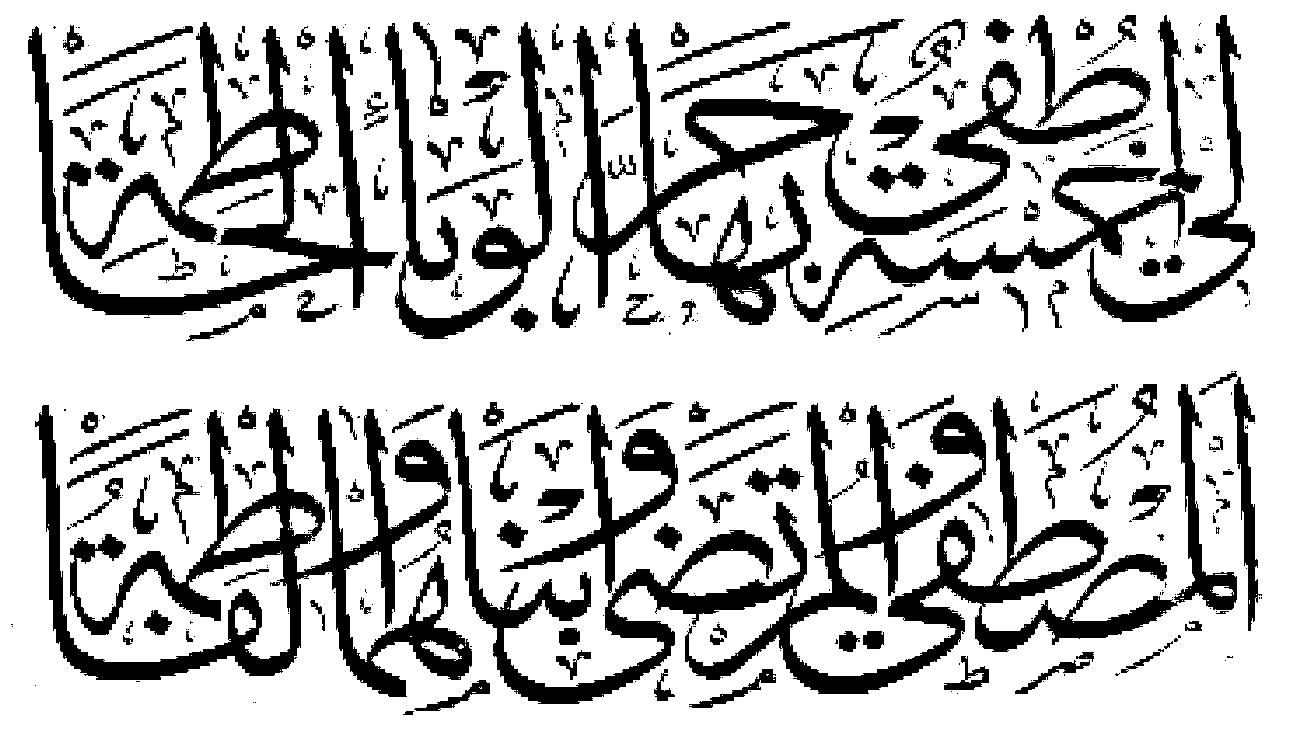 لي خمسة اطفي بها حر الوبا الحاطمة
المصطفى والمرتضى وابناهما والفاطمة